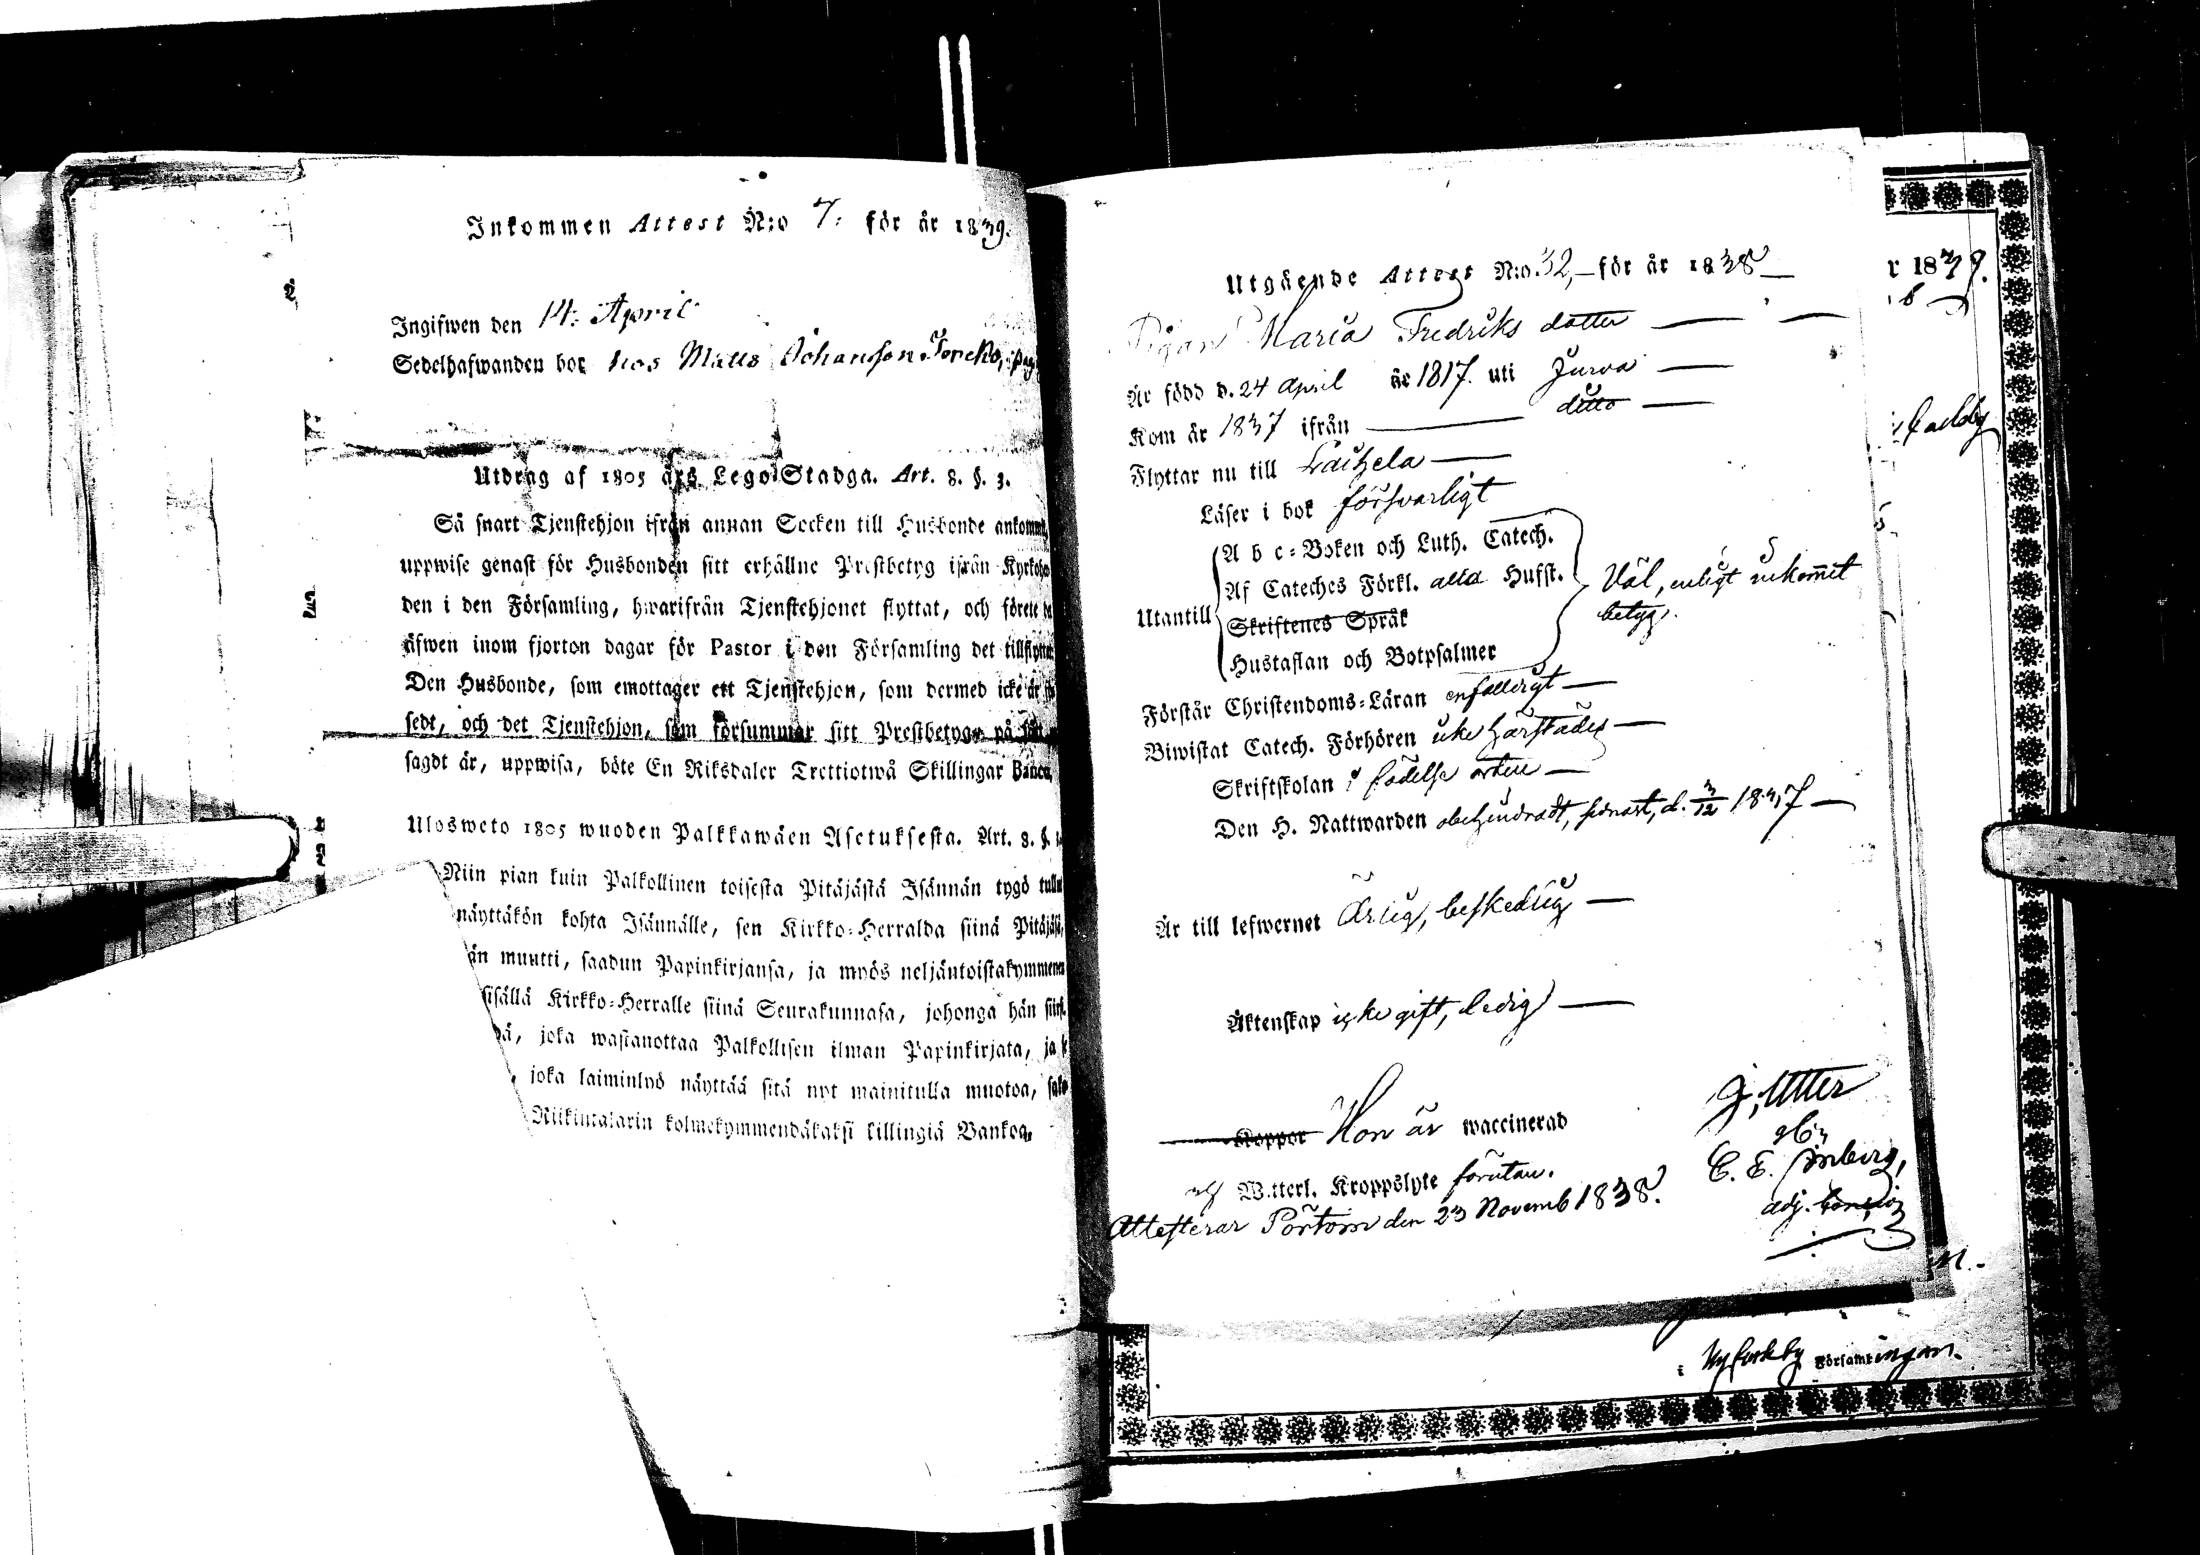 Inkommen Attest N:o 7: för år 1839.
Ingifwen den 14: April
Sedelhafwanden bor hos Matts Johansson
Utdrag af 1805 års Lego-Stadga. Art. 8. §. 3.
Så snart Tjenstehjon ifrån annan Socken till Husbonde ankommit,
uppwise genast för Husbonden sitt erhållne Prestbetyg ifrån
den i den Församling, hwarifrån Tjenstehjonet flyttat, och förete
äfwen inom fjorton dagar för Pastor i den Församling det
Den Husbonde, som emottager ett Tjenstehjon, som dermed icke är
sedt, och det Tjenstehjon, som försummar sitt Prestbetyg, på
sagdt är, uppwisa, böte En Riksdaler Trettiotwå Skillingar Banco.
Ulosweto 1805 wuoden Palkkawäen Asetuksesta. Art. 8. §.
Niin pian kuin Palkollinen toisesta Pitäjästä Isännän tygö
näyttäkön kohta Isännälle, sen Kirkko-Herralda siinä
än muutti, saadun Papinkirjansa, ja myös neljäntoistakymmenen
sisällä Kirkko-Herralle siinä Seurakunnasa, johonga hän
ä, joka wastanottaa Palkollisen ilman Papinkirjata, ja
, joka laiminlyö näyttää sitä nyt mainitulla muotoa,
Riikintalarin kolmekymmendäkaksi killingiä Bankoa.
Utgående Attest N:o 32, för år 1838
Pigan Maria Fredriks dotter
Är född d. 24 April år 1817. uti Jurva
Kom år 1837 ifrån ditto
Flyttar nu till Laihela
Läser i bok försvarligt
Utantill
A b c-Boken och Luth. Catech.
Af Cateches Förkl. alla Hufst.
Skriftenes Språk
Hustaflan och Botpsalmer
Väl, enligt inkommit
betyg.
Förstår Christendoms-Läran enfalligt
Biwistat Catech. Förhören icke härstädes
Skriftskolan i födelse orten
Den H. Nattwarden obehindradt, senast, d. 3/12 1837
Är till lefwernet Ärlig, beskedlig
Äktenskap icke gift, ledig
Koppor Hon är waccinerad
Witterl. Kroppslyte förutan.
Attesterar Pörtom den 23 Novemb 1838.
r 1839.
i Församlingen.